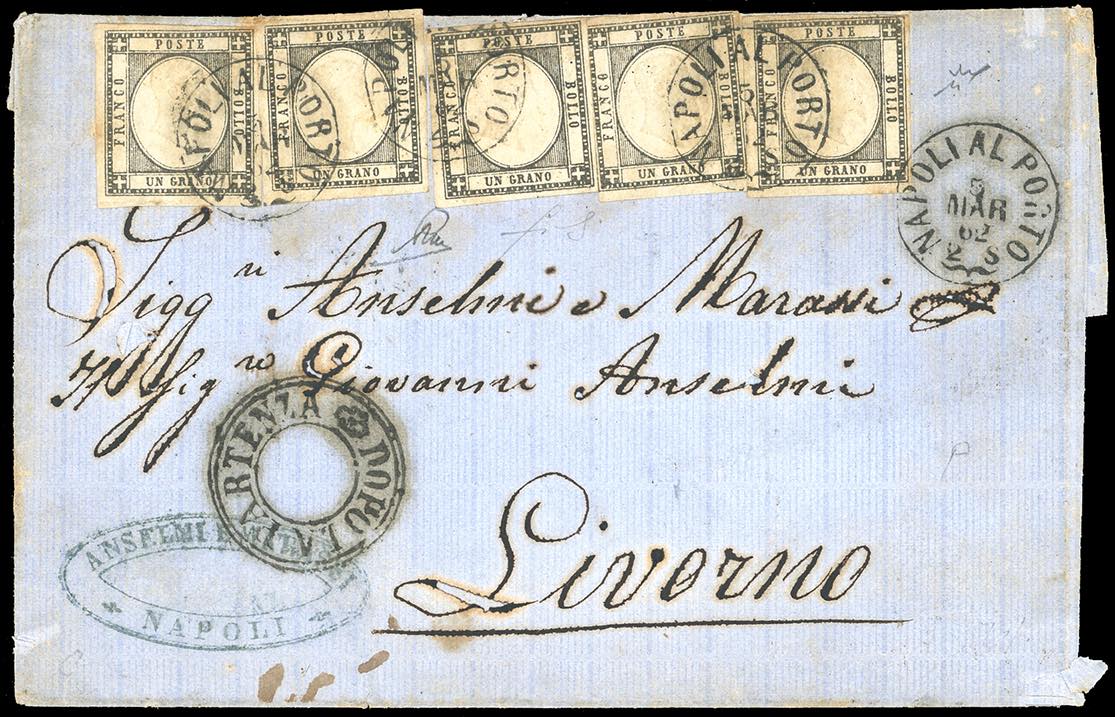 POSTE FRANCO BOLLO UN GRANO
POSTE FRANCO BOLLO UN GRANO
POSTE FRANCO BOLLO UN GRANO
POSTE FRANCO BOLLO UN GRANO
POSTE FRANCO BOLLO UN GRANO
NAPOLI AL PORTO
NAPOLI AL PORTO
NAPOLI AL PORTO
MAR
62
Sigg ri Anselmi e Marassi
Sig re Giovanni Anselmi
DOPO LA PARTENZA
Livorno
ANSELMI
NAPOLI